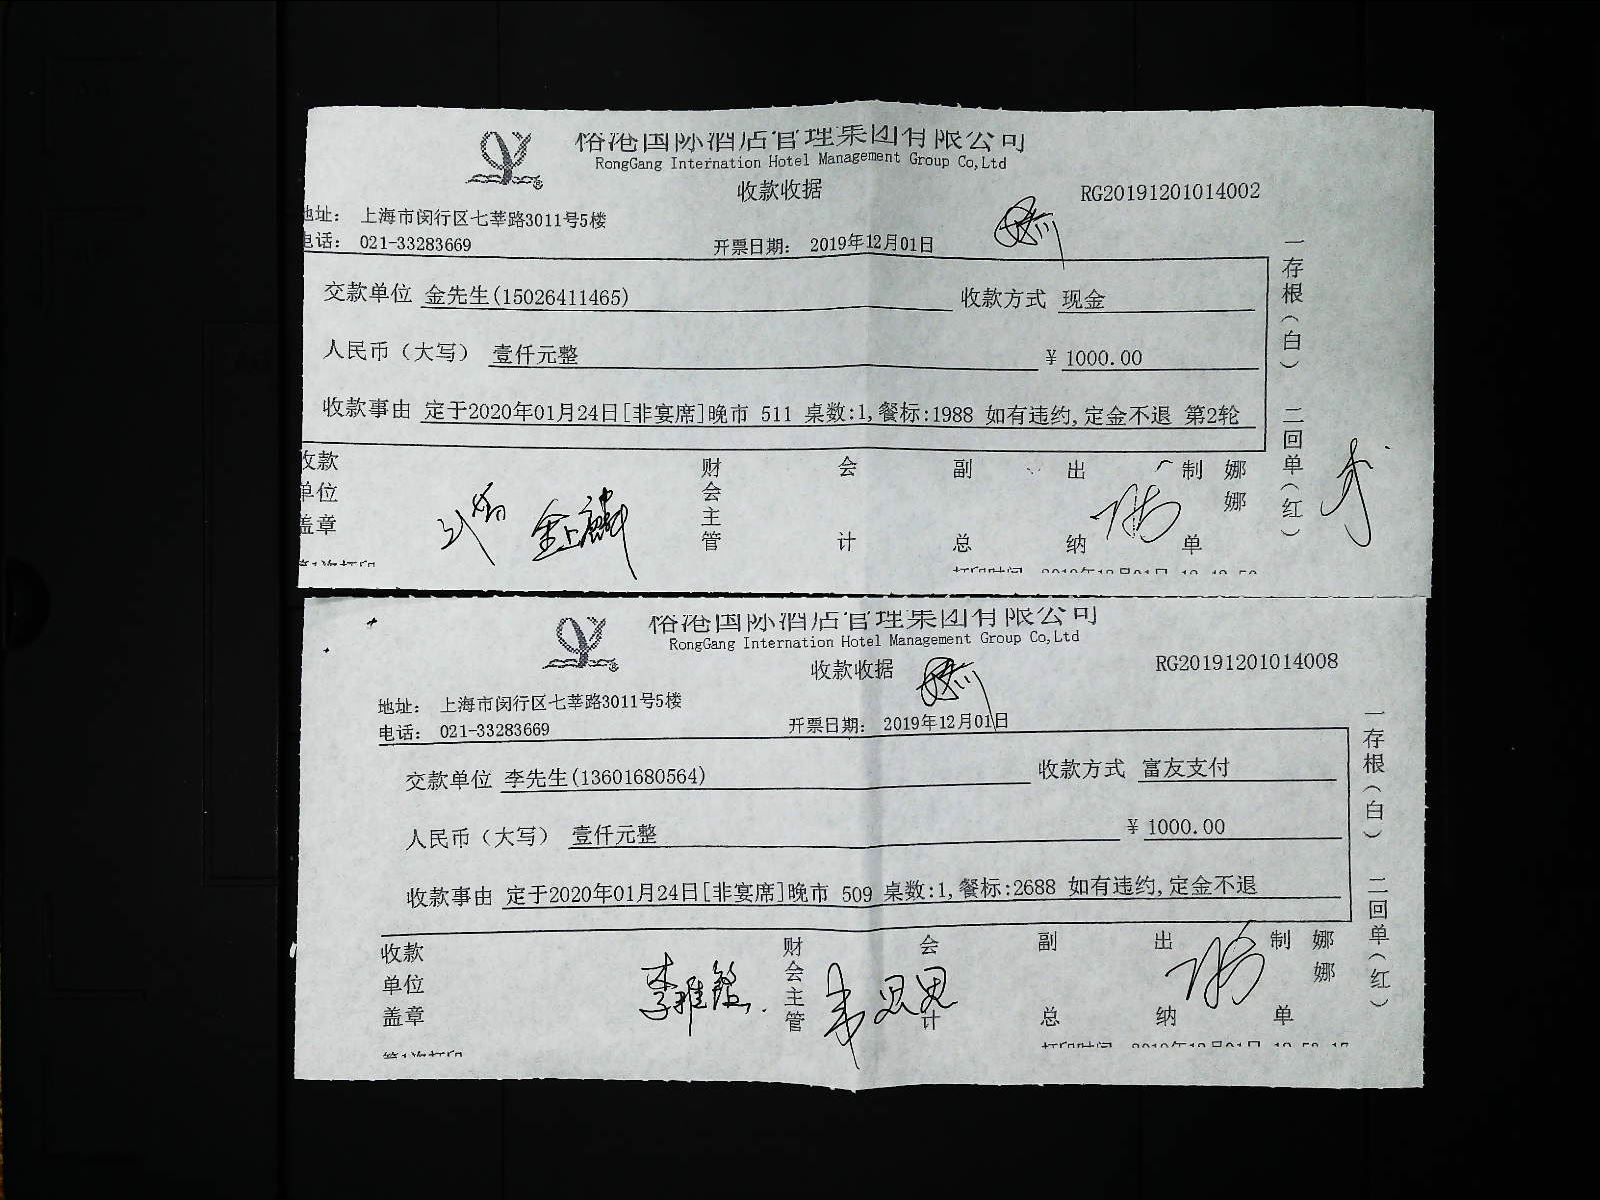 榕港国际酒店管理集团有限公司
RongGang Internation Hotel Management Group Co,Ltd
收款收据
RG20191201014002
地址： 上海市闵行区七莘路3011号5楼
电话： 021-33283669
开票日期： 2019年12月01日
交款单位 金先生(15026411465) 收款方式 现金
人民币（大写） 壹仟元整 ¥ 1000.00
收款事由 定于2020年01月24日[非宴席]晚市 511 桌数:1,餐标:1988 如有违约,定金不退 第2轮
收款单位盖章 财会主管 会计 副总 出纳 制单 娜娜
金上麟
一存根（白） 二回单（红）
第1次打印
打印时间 2019年12月01日
榕港国际酒店管理集团有限公司
RongGang Internation Hotel Management Group Co,Ltd
收款收据
RG20191201014008
地址： 上海市闵行区七莘路3011号5楼
电话： 021-33283669
开票日期： 2019年12月01日
交款单位 李先生(13601680564) 收款方式 富友支付
人民币（大写） 壹仟元整 ¥ 1000.00
收款事由 定于2020年01月24日[非宴席]晚市 509 桌数:1,餐标:2688 如有违约,定金不退
收款单位盖章 财会主管 会计 副总 出纳 制单 娜娜
朱思思
一存根（白） 二回单（红）
第1次打印
打印时间 2019年12月01日